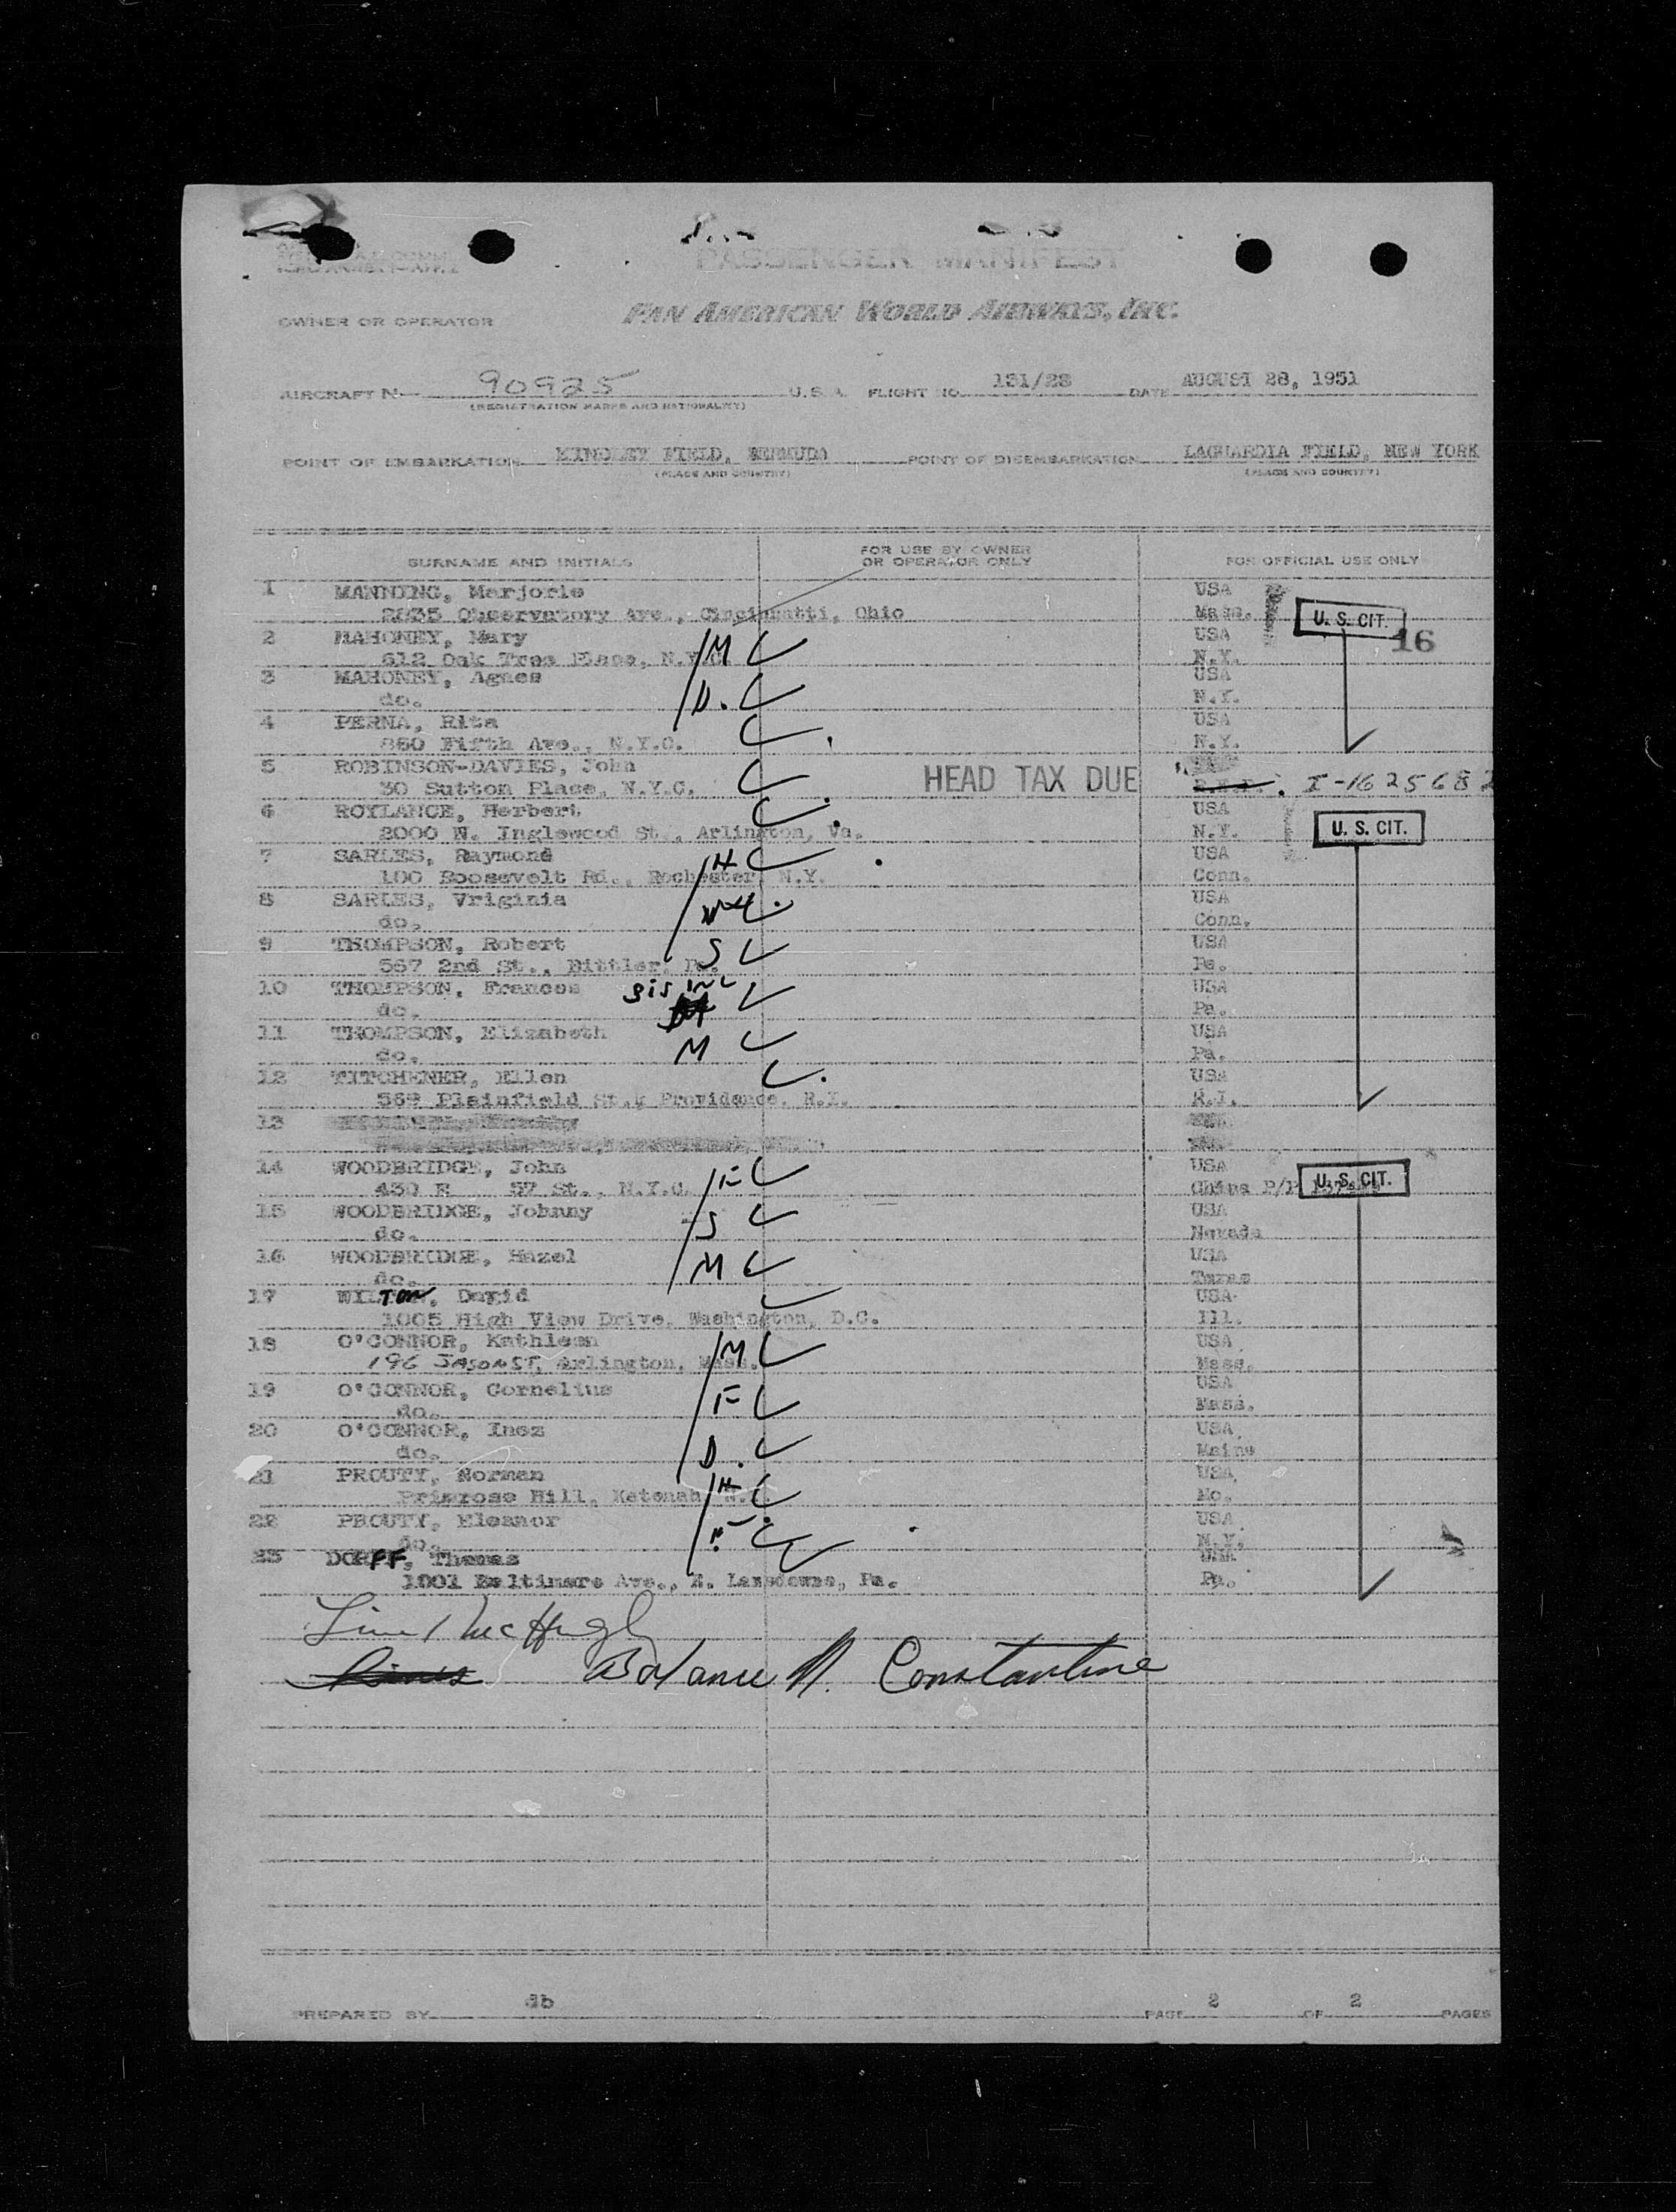 PASSENGER MANIFEST
OWNER OR OPERATOR PAN AMERICAN WORLD AIRWAYS, INC.
AIRCRAFT N 90925 U.S.A. FLIGHT NO. 131/28 DATE AUGUST 28, 1951
(REGISTRATION MARKS AND NATIONALITY)
POINT OF EMBARKATION KINDLEY FIELD, BERMUDA POINT OF DISEMBARKATION LAGUARDIA FIELD, NEW YORK
(PLACE AND COUNTRY) (PLACE AND COUNTRY)
SURNAME AND INITIALS FOR USE BY OWNER OR OPERATOR ONLY FOR OFFICIAL USE ONLY
1 MANNING, Marjorie USA
2835 Observatory Ave., Cincinnatti, Ohio Mass. U. S. CIT.
2 MAHONEY, Mary M USA 16
612 Oak Tree Place, N.Y.C. N.Y.
3 MAHONEY, Agnes D. USA
do. N.Y.
4 PERNA, Rita USA
860 Fifth Ave., N.Y.C. N.Y.
5 ROBINSON-DAVIES, John HEAD TAX DUE
30 Sutton Place, N.Y.C. I-1625682
6 ROYLANCE, Herbert USA
2000 N. Inglewood St., Arlington, Va. N.Y. U. S. CIT.
7 SARLES, Raymond H USA
100 Roosevelt Rd., Rochester, N.Y. Conn.
8 SARLES, Vriginia W USA
do. Conn.
9 THOMPSON, Robert S USA
567 2nd St., Pa. Pa.
10 THOMPSON, Frances sis USA
do. Pa.
11 THOMPSON, Elizabeth M USA
do. Pa.
12 TITCHENER, Ellen USA
569 Plainfield St., Providence, R.I. R.I.
13
14 WOODBRIDGE, John F USA
430 E 57 St., N.Y.C. China P/P U. S. CIT.
15 WOODBRIDGE, Johnny S USA
do. Nevada
16 WOODBRIDGE, Hazel M USA
do. Texas
17 WILTON, David USA
1005 High View Drive, Washington, D.C. Ill.
18 O'CONNOR, Kathleen M USA
196 JASON ST, Arlington, Mass. Mass.
19 O'CONNOR, Cornelius F USA
do. Mass.
20 O'CONNOR, Inez D. USA
do. Maine
21 PROUTY, Norman H USA
Primrose Hill, Katonah, N.Y. Mo.
22 PROUTY, Eleanor USA
do. N.Y.
23 DORFF, Thomas USA
1001 Baltimore Ave., E. Lansdowne, Pa. Pa.
McHugh
Constantine
PREPARED BY db PAGE 2 OF 2 PAGES